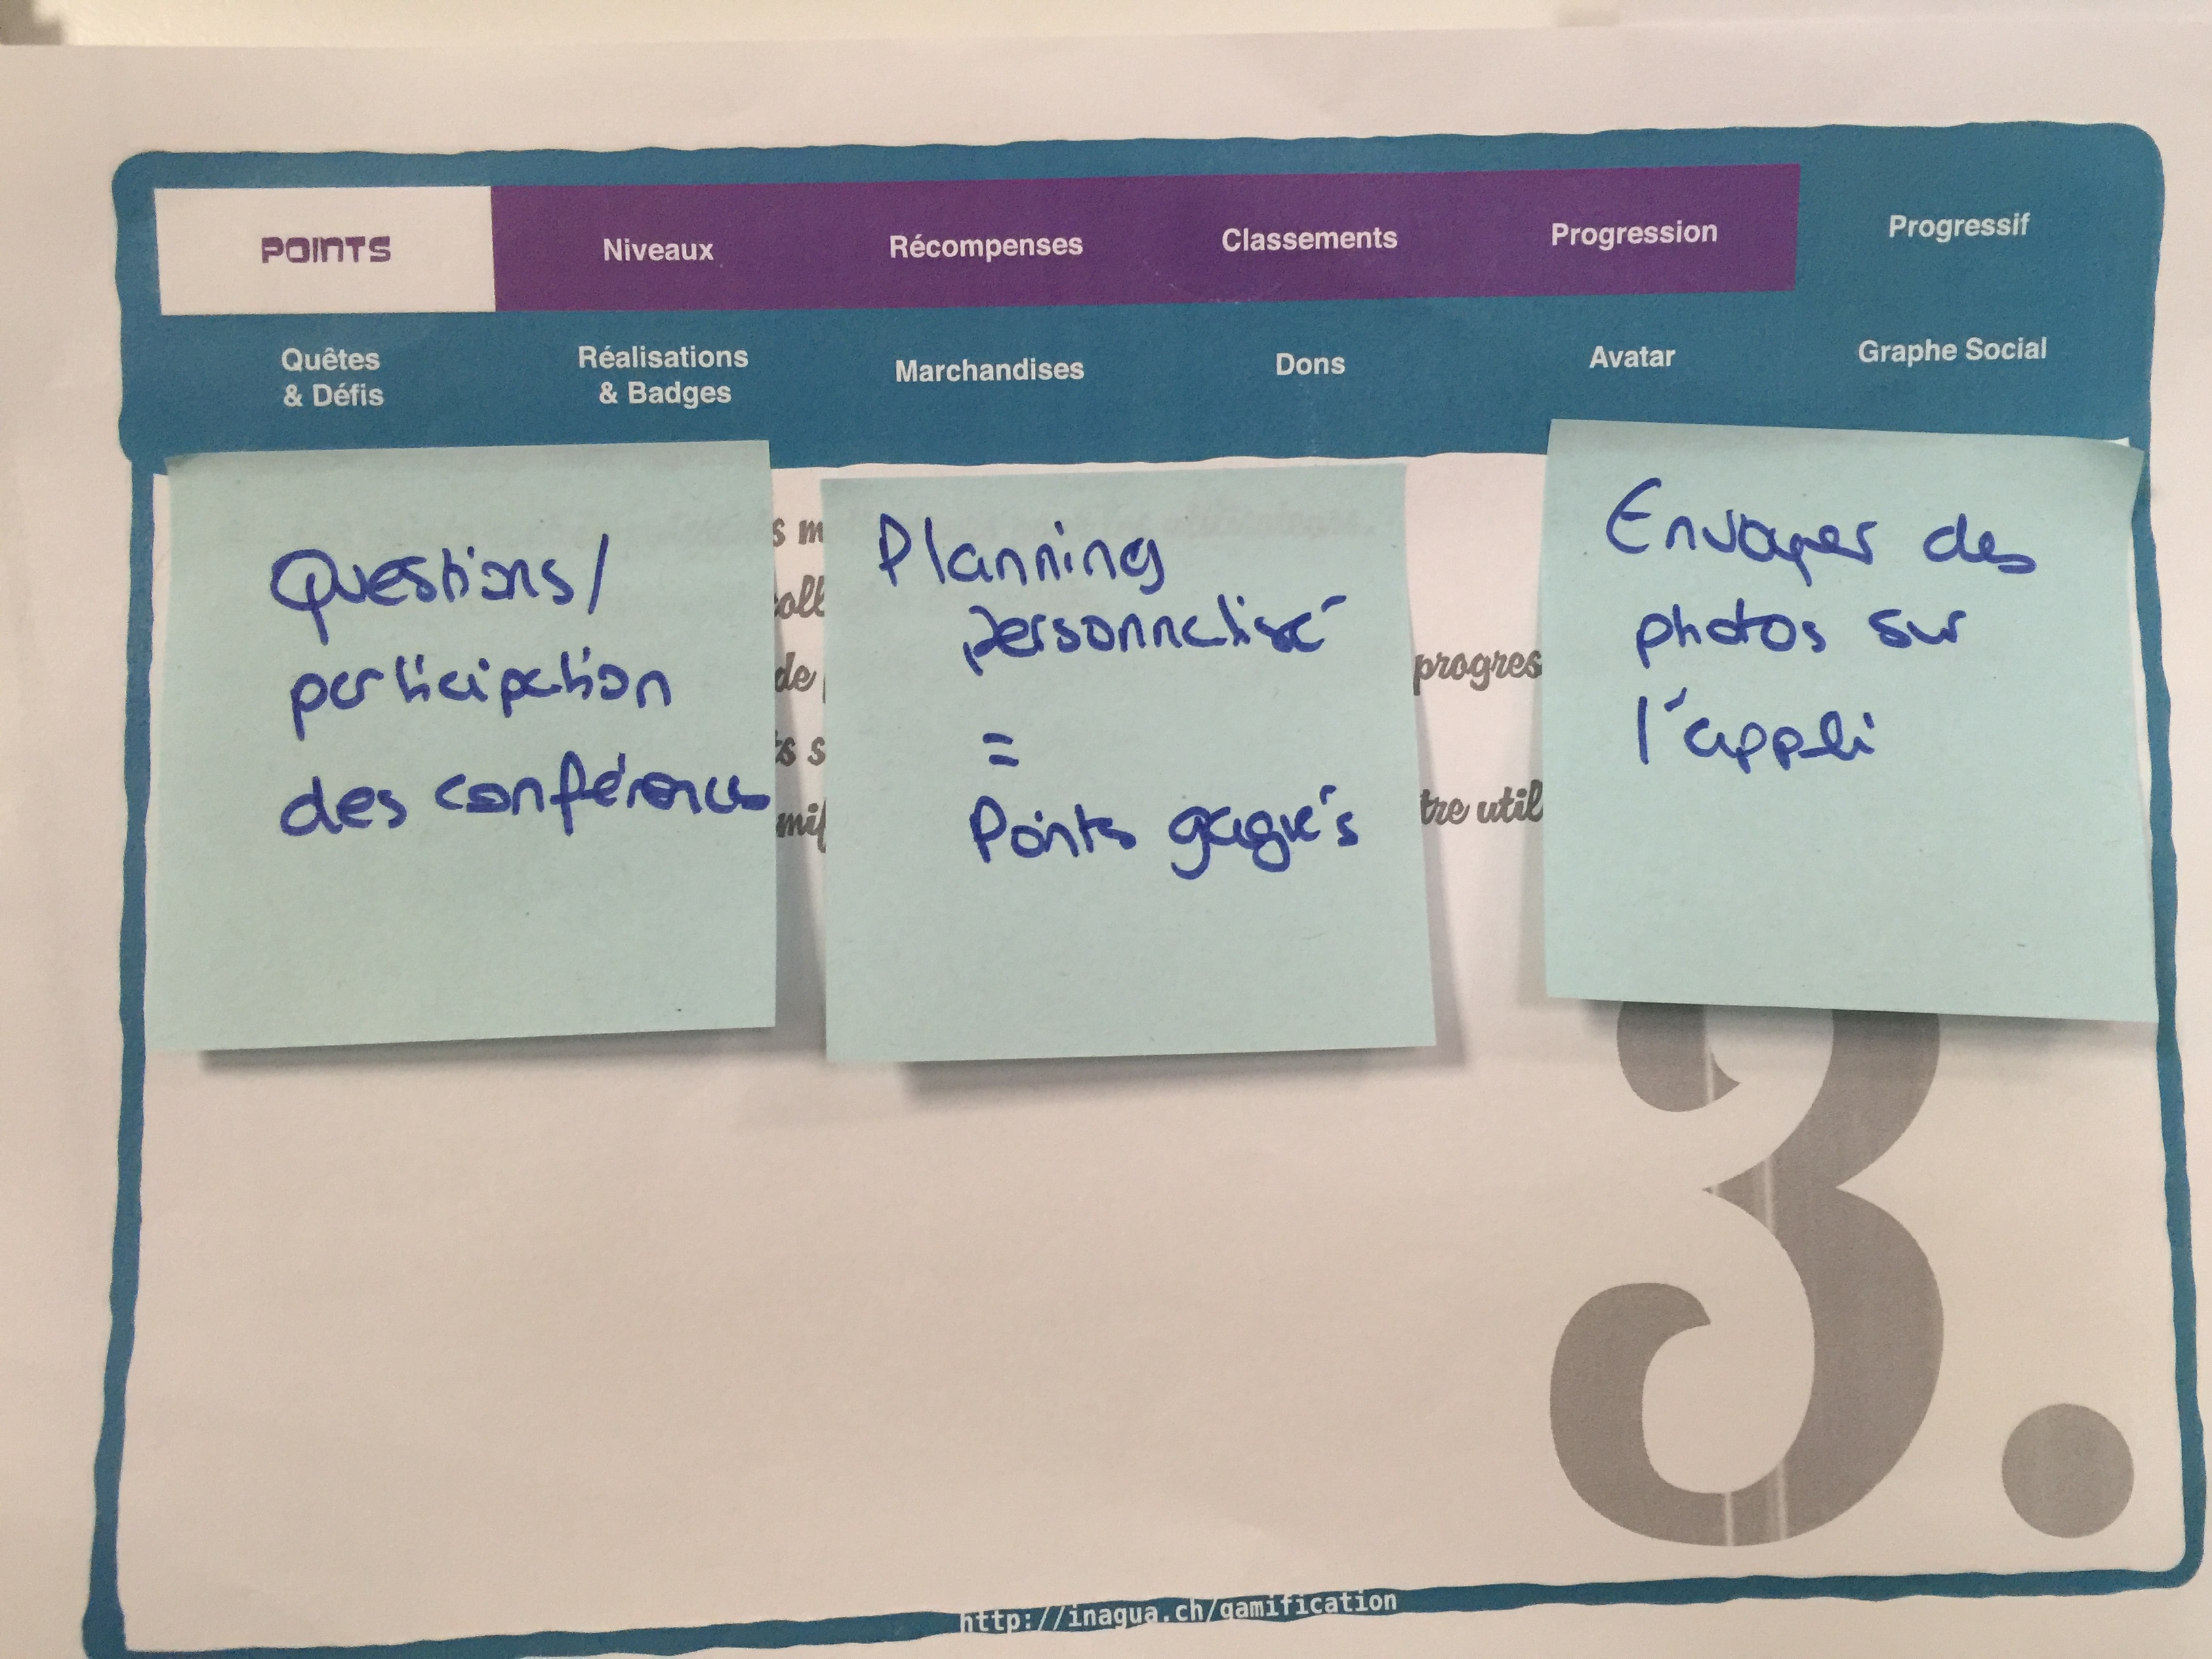 POINTS Niveaux Récompenses Classements Progression Progressif
Quêtes Réalisations Marchandises Dons Avatar Graphe Social
& Défis & Badges
Questions/
participation
des conférences
Planning
personnalisé
=
Points gagnés
Envoyer des
photos sur
l'appli
progres
tre util
3.
http://inagua.ch/gamification